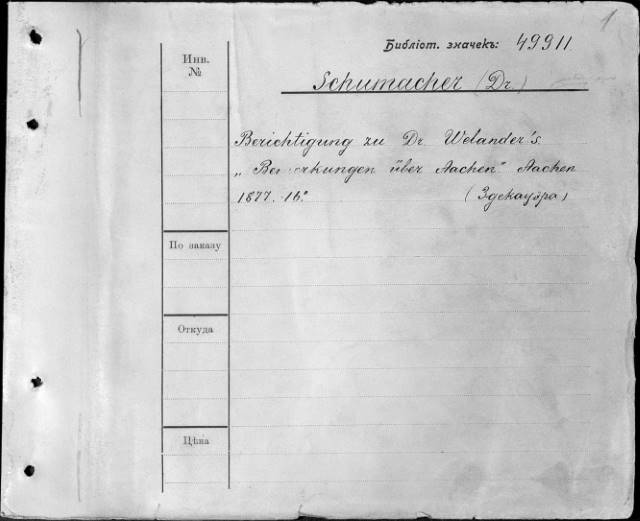 1
Библіот. значекъ: 49911
Инв.
№
Schumacher (Dr.)
Berichtigung zu Dr. Welander's
„Bemerkungen über Aachen" Aachen
1877. 16°
(Здекауэра)
По заказу
Откуда
Цѣна